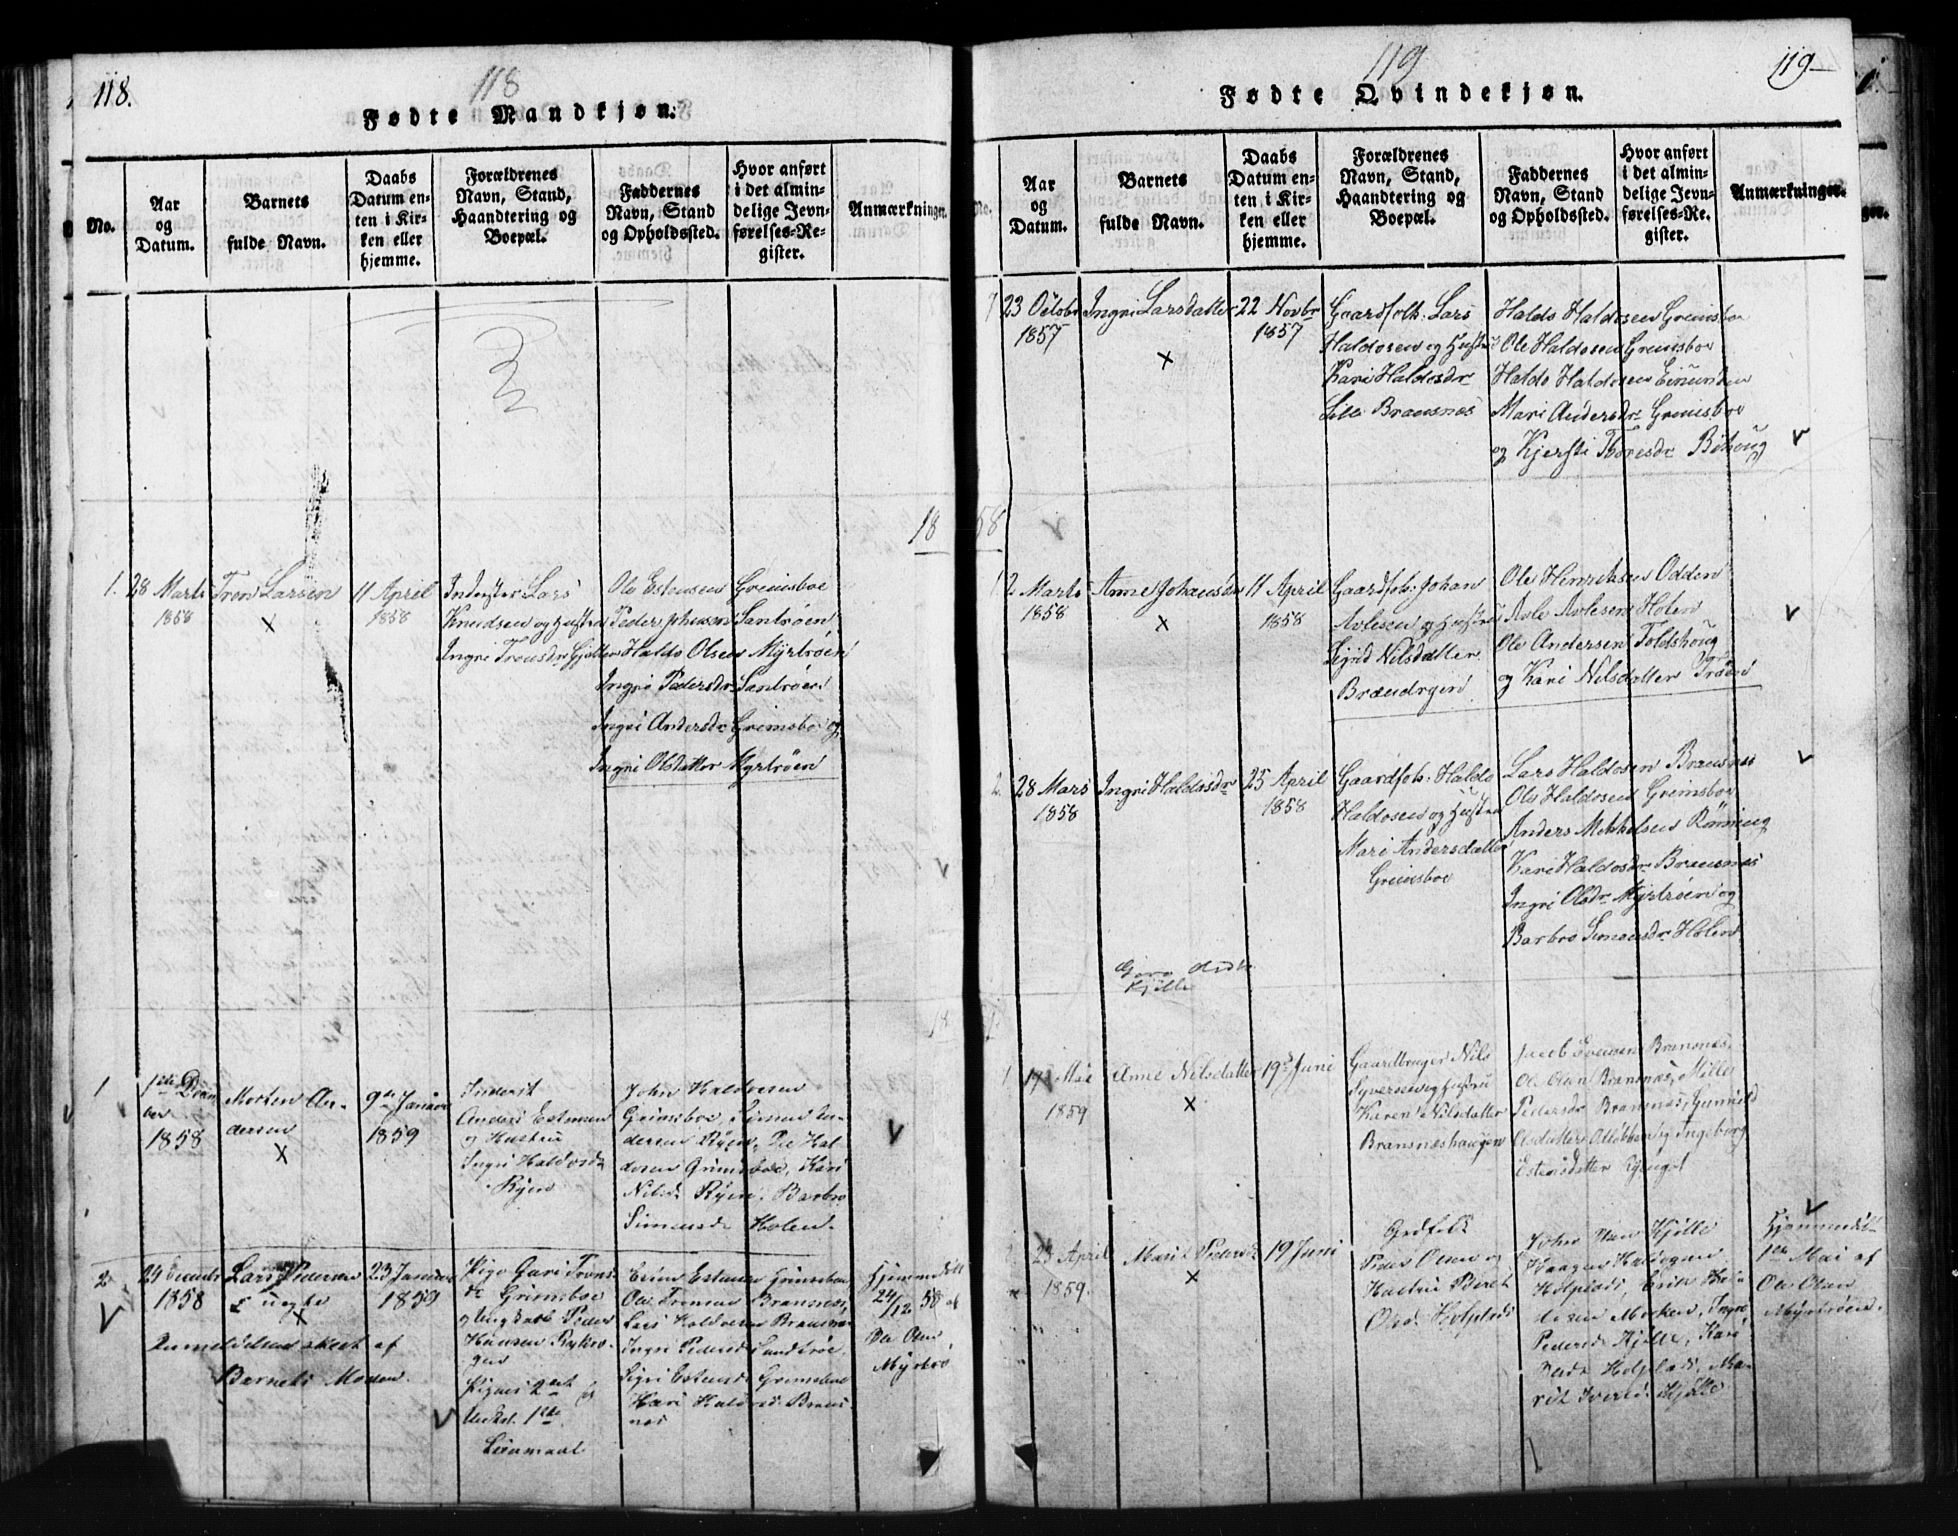 118.
118
Fødte Mandkjøn.
No.
Aar og Datum.
Barnets fulde Navn.
Daabs Datum enten i Kirken eller hjemme.
Forældrenes Navn, Stand, Haandtering og Boepæl.
Faddernes Navn, Stand og Opholdssted.
Hvor anført i det almindelige Jevnførelses-Register.
Anmærkninger.
18
1. 28 Marts 1858
Tron Larsen
x
11 April 1858
Inderster Lars
Knudsen og Hustru
Ingri Tronsdr
Ole Estensen Grimsboe
Peder Johnsen Santrøen
Haldo Olsen Myrtrøen
Ingri Pedersdr Santrøen
Ingri Andersdr Grimsboe og
Ingri Olsdatter Myrtrøen
1
1858
Morten An-
dersen
x
9de Januar
1859
Inderst
Anders Estensen
og Hustru
Ingri Haldosdr
Ryen
John Haldosen
Grimsboe, Simen An-
dersen Ryen, Ole Hal-
dosen Grimsboe, Kari
Nilsdr Ryen, Barbro
Simensdr Holen.
2
24 Decembr
1858
Lars Pedersen
uegte
x
Anmeldelsen skeet af
Barnets Moder.
23 Januar
1859
Pige Gari Trons-
dr Grimsboe
og Ungkarl Peder
Hansen
Pigens 2det og
Ungkarl. 1ste
Leiermaal
Esten Estensen Grimsboe
Ole Tronsen Bransnes,
Lars Haldosen Bransnes
Ingri Pedersdr Sandtrøe,
Sigri Estensdr Grimsboe
Kari Haldosdr Brans-
nes
Hjemmedøbt
24/12 58 af
Ole Olsen
Myrtrø
119
119
Fødte Qvindekjøn.
No.
Aar og Datum.
Barnets fulde Navn.
Daabs Datum enten i Kirken eller hjemme.
Forældrenes Navn, Stand, Haandtering og Boepæl.
Faddernes Navn, Stand og Opholdssted.
Hvor anført i det almindelige Jevnførelses-Register.
Anmærkninger.
7 23 Octobr
1857
Ingri Larsdatter
x
22 Novbr
1857
Gaardfolk. Lars
Haldosen og Hustru
Kari Haldosdr
Lille Bransnes
Haldo Haldosen Grimsboe
Ole Haldosen Grimsboe
Haldo Haldosen Einunden
Mari Andersdr Grimsboe
og Kjersti Toresdr Bøhoug
58
1. 2 Marts
1858
Anne Johansdr
x
11 April
1858
Gaardfolk. Johan
Avlesen og Hustru
Sigrid Nilsdatter
Brændryen
Ole Henriksen Odden
Avle Avlesen Holen
Ole Andersen Toldshoug
og Kari Nilsdatter Trøen
2. 28 Mars
1858
Ingri Haldosdr
25 April
1858
Gaardfolk. Haldo
Haldosen og Hustru
Mari Andersdatter
Grimsboe
Lars Haldosen Bransnes
Ole Haldosen Grimsboe
Anders Mikkelsen Rønning
Kari Haldosdr Bransnes
Ingri Olsdr Myrtrøen og
Barbro Simensdr Holen
Kjølle
1 17 Mai
1859
Anne Nilsdatter
x
19de Juni
Gaardbruger Nils
Syversen og Hustru
Karen Nilsdatter
Bransneshaugen
Jacob Bransnes,
Ole Olsen Bransnes,
Pedersdr Bransnes, Gunild
Olsdatter og Ingeborg
Estensdatter
23 April
1859.
Marit Pedersdr
x
19 Juni
Grdfolk
Peder Olsen og
Hustru Peret
Olsd. Holpladsd
John Kjølle
Haagen Haldogen
Holplads, Erik
Moeken, Ingri
Pedersdr Kjølle, Kari
Olsdr Holplads, Ma-
rit Iversdr Kjølle
Hjemmedøbt
1ste Mai af
Ole Olsen
Myrtrøen.